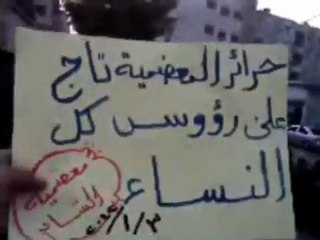 حرائر المعضمية تاج
على رؤوس كل
النساء
معضمية
الشام
٢٠١٢/١/٣